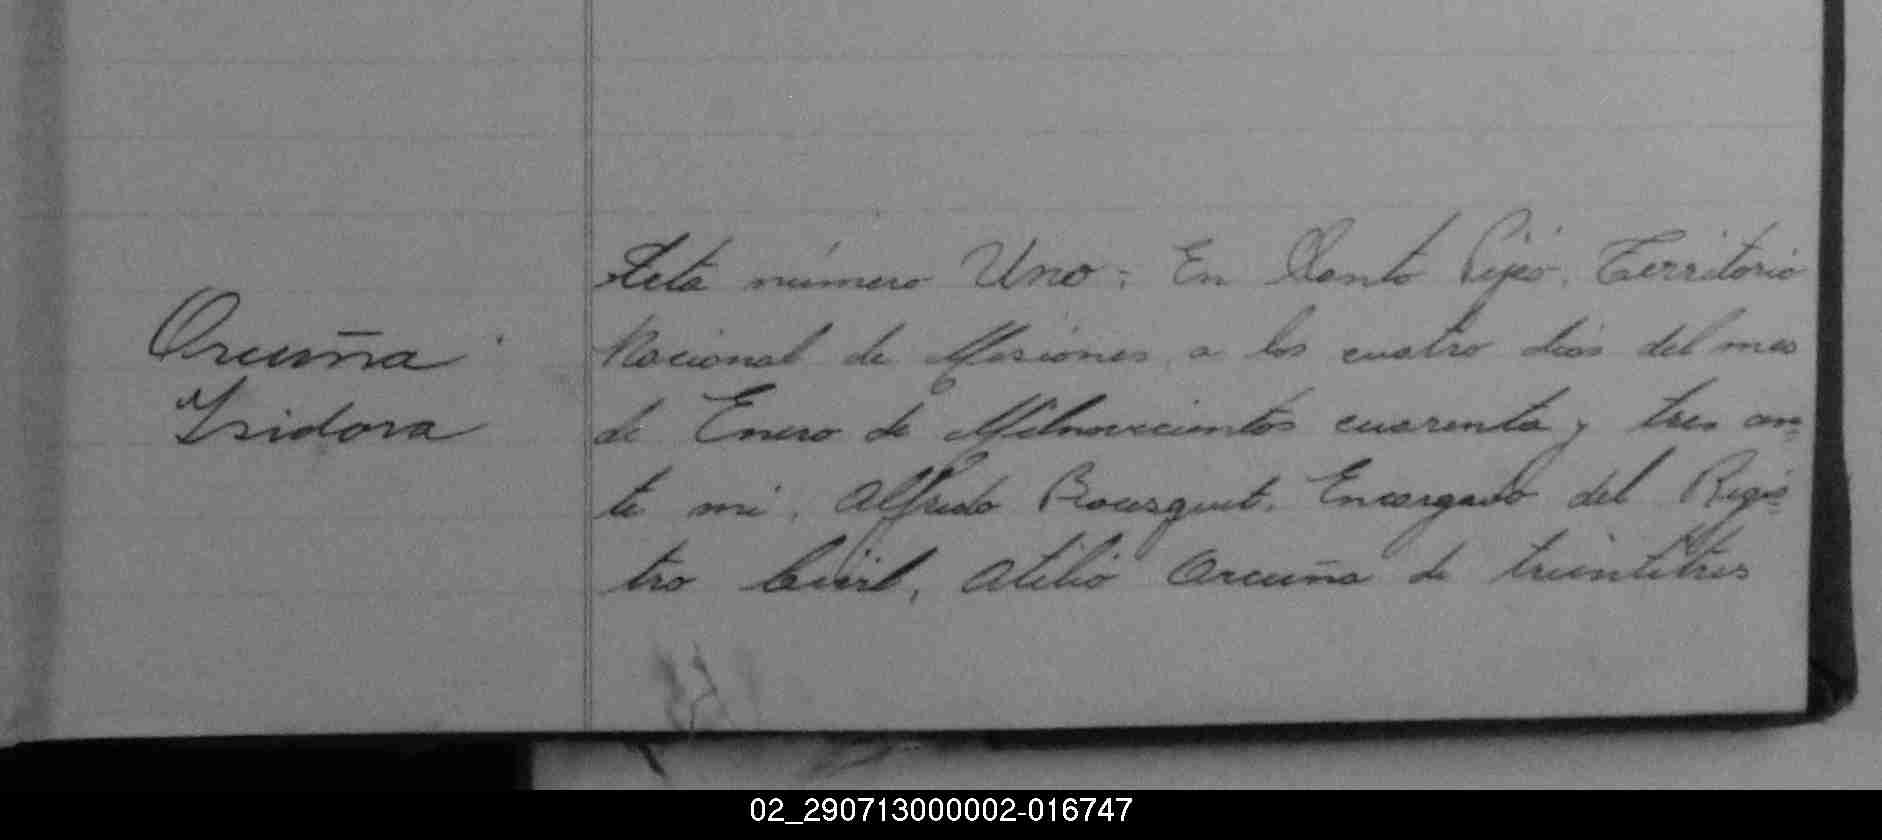 Orcuña
Isidora
Acta número Uno: En Santo Pipó. Territorio
Nacional de Misiones, a los cuatro dias del mes
de Enero de Milnovecientos cuarenta y tres an-
te mi, Alfredo Bousquet, Encargado del Regis-
tro Civil, Atilio Orcuña de treintitres
02_290713000002-016747